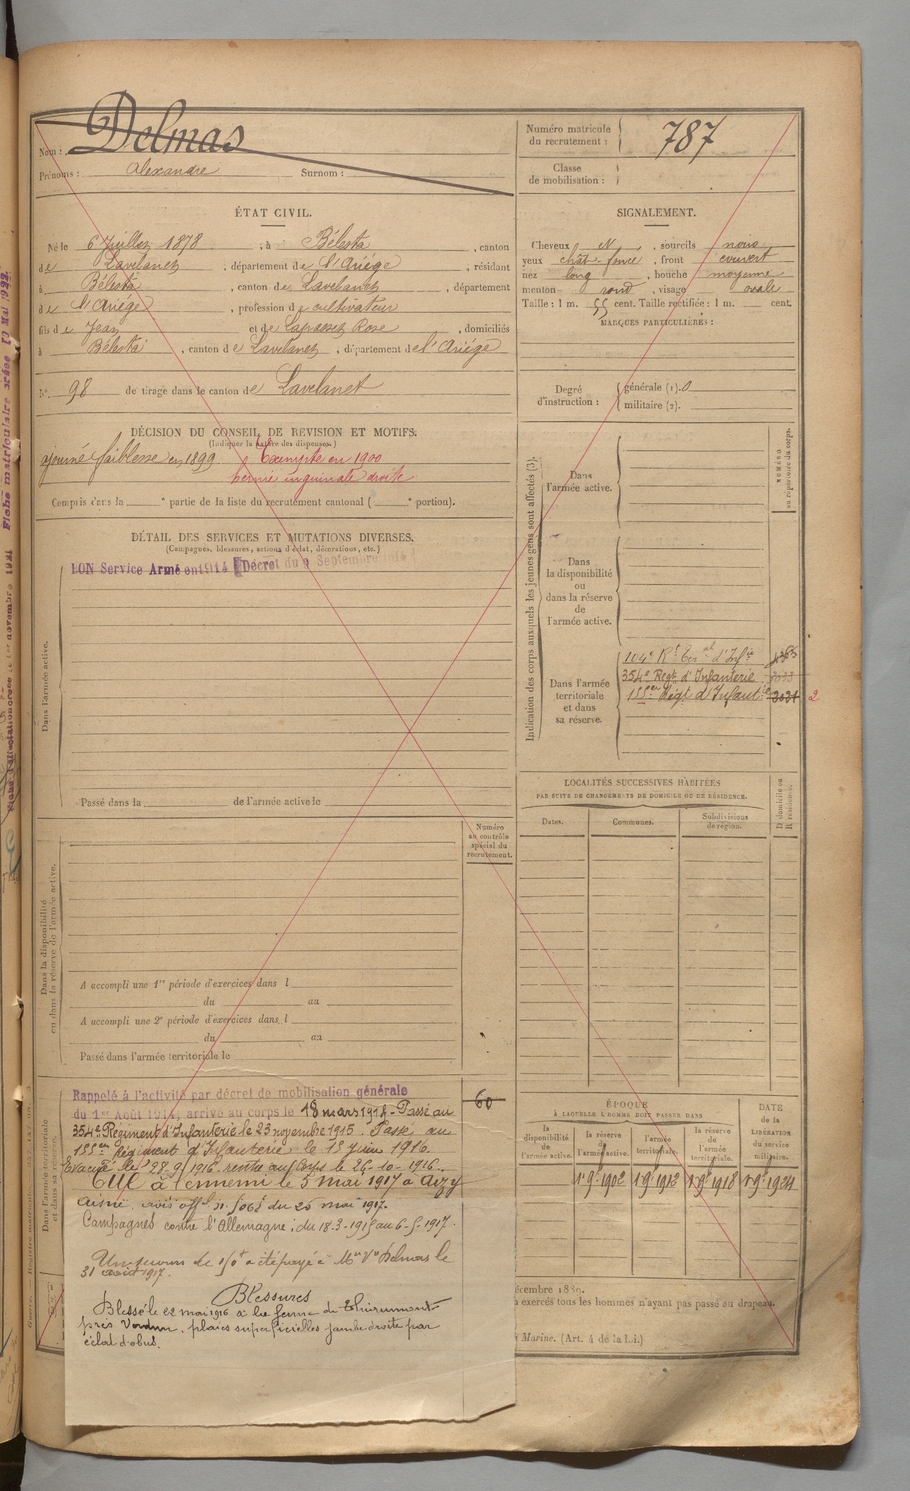 Nom : Delmas
Prénoms : Alexandre Surnom :
Numéro matricule du recrutement : 787
Classe de mobilisation :
ÉTAT CIVIL.
Né le 6 Juillet 1878, à Bélesta, canton
de Lavelanet, département de l'Ariége, résidant
à Bélesta, canton de Lavelanet, département
de l'Ariége, profession de cultivateur
fils de Jean et de Lapasset Rose, domiciliés
à Bélesta, canton de Lavelanet, département de l'Ariége
N° 98 de tirage dans le canton de Lavelanet
SIGNALEMENT.
Cheveux N, sourcils noirs
yeux chât. foncé, front couvert
nez long, bouche moyenne
menton rond, visage ovale
Taille : 1 m. 55 cent. Taille rectifiée : 1 m. cent.
MARQUES PARTICULIÈRES :
Degré d'instruction : générale (1). 0
militaire (2).
DÉCISION DU CONSEIL DE REVISION ET MOTIFS.
(Indiquer la nature des dispenses.)
ajourné faiblesse en 1899 Exempté en 1900
hernie inguinale droite
Compris dans la e partie de la liste du recrutement cantonal ( e portion).
DÉTAIL DES SERVICES ET MUTATIONS DIVERSES.
(Campagnes, blessures, actions d'éclat, décorations, etc.)
BON Service Armé en 1914 Décret du 9 Septembre 1914
Dans l'armée active.
Passé dans la de l'armée active le
Indication des corps auxquels les jeunes gens sont affectés (3).
Dans l'armée active.
NUMÉRO au répertoire du corps.
Dans la disponibilité ou dans la réserve de l'armée active.
Dans l'armée territoriale et dans sa réserve.
104e Rt Ter al d'Infie
354e Régt d'Infanterie
155em Régt d'Infantie 2
LOCALITÉS SUCCESSIVES HABITÉES
PAR SUITE DE CHANGEMENTS DE DOMICILE OU DE RÉSIDENCE.
Dates. Communes. Subdivisions de région.
D. domicile ou R. résidence.
Numéro au contrôle spécial du recrutement.
Dans la disponibilité ou dans la réserve de l'armée active.
A accompli une 1re période d'exercices dans l
du au
A accompli une 2e période d'exercices dans l
du au
Passé dans l'armée territoriale le
Rappelé à l'activité par décret de mobilisation générale
du 1er Août 1914, arrivé au corps le 18 mars 1915 - Passé au
354e Régiment d'Infanterie le 23 novembre 1915. Passé au
155em Régiment d'Infanterie le 15 Juin 1916.
Evacué le 28.9.1916. rentré au Corps le 26-10-1916.
Tué à l'ennemi le 5 mai 1917 à Aizy
Aisne, avis offel du 25 mai 1917.
Campagnes contre l'Allemagne : du 18-3-1915 au 6-5-1917.
Un secours de a été payé à Me Ve Delmas le
31 août 1917.
Blessures
Blessé le 22 mai 1916 à la ferme de Thiaumont
près Verdun. plaies superficielles jambe droite par
éclat d'obus.
60
ÉPOQUE
À LAQUELLE L'HOMME DOIT PASSER DANS
la disponibilité de l'armée active. la réserve de l'armée active. l'armée territoriale. la réserve de l'armée territoriale.
DATE de la LIBÉRATION du service militaire.
1-9e-1902 1-9e-1912 1-9e-1918 1-9e-1924
à exercés tous les hommes n'ayant pas passé au drapeau.
Marine. (Art. 4 de la Loi.)